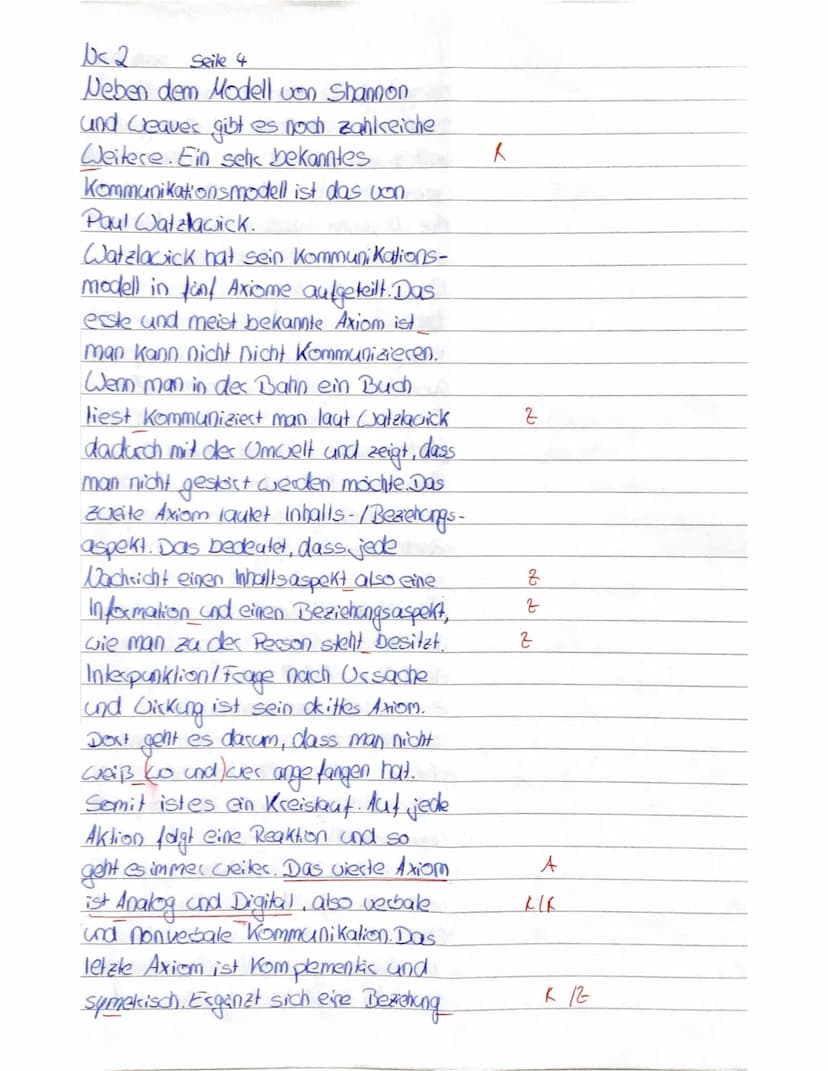 Nr 2 Seite 4
Neben dem Modell von Shannon
und Weaver gibt es noch zahlreiche
Weitere. Ein sehr bekanntes R
Kommunikationsmodell ist das von
Paul Watzlawick.
Watzlawick hat sein Kommunikations-
modell in fünf Axiome aufgeteilt. Das
erste und meist bekannte Axiom ist
man kann nicht nicht Kommunizieren.
Wenn man in der Bahn ein Buch
liest Kommuniziert man laut Watzlawick Z
dadurch mit der Umwelt und zeigt, dass
man nicht gestört werden möchte. Das
zweite Axiom lautet Inhalts-/Beziehungs-
aspekt. Das bedeutet, dass jede
Nachricht einen Inhaltsaspekt also eine Z
Information und einen Beziehungsaspekt, Z
wie man zu der Person steht besitzt. Z
Interpunktion/Frage nach Ursache
und Wirkung ist sein drittes Axiom.
Dort geht es darum, dass man nicht
weiß (wo und) wer angefangen hat.
Somit ist es ein Kreislauf. Auf jede
Aktion folgt eine Reaktion und so
geht es immer weiter. Das vierte Axiom A
ist Analog und Digital, also verbale R/R
und nonverbale Kommunikation. Das
letzte Axiom ist Komplementär und
symetrisch. Ergänzt sich eine Beziehung R/Z